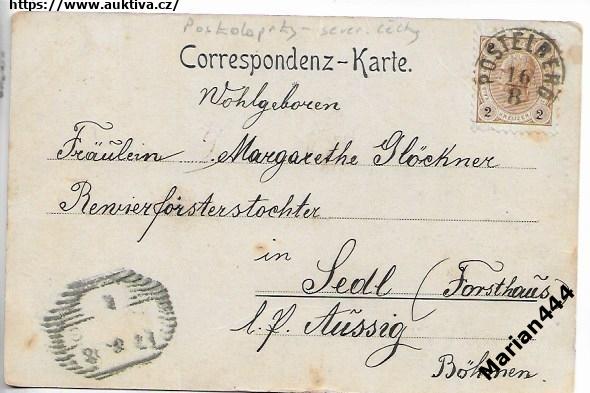 https://www.auktiva.cz/
Postoloprty - sever. čechy
Correspondenz-Karte.
POSTELBERG
16
8
2 KREUZER 2
Wohlgeboren
Fräulein Margarethe Glöckner
Rewierförsterstochter
in
Sedl (Forsthaus
l. P. Aussig
Böhmen.
Marian444